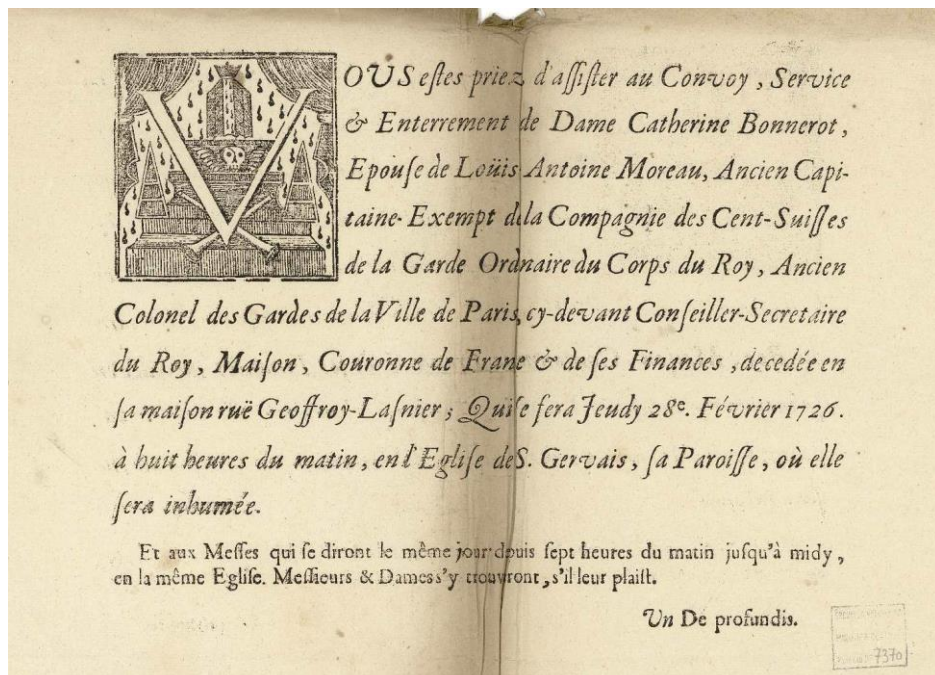 VOUS estes priez d'assister au Convoy, Service
& Enterrement de Dame Catherine Bonnerot,
Epouse de Loüis Antoine Moreau, Ancien Capi-
taine-Exempt dela Compagnie des Cent-Suisses
de la Garde Ordnaire du Corps du Roy, Ancien
Colonel des Gardes de la Ville de Paris, cy-devant Conseiller-Secretaire
du Roy, Maison, Couronne de Frane & de ses Finances, decedée en
sa maison ruë Geoffroy-Lasnier; Qui se fera Jeudy 28e. Février 1726.
à huit heures du matin, en l'Eglise de S. Gervais, sa Paroisse, où elle
sera inhumée.
Et aux Messes qui se diront le même jour dpuis sept heures du matin jusqu'à midy,
en la même Eglise. Messieurs & Dames s'y trouvront, s'il leur plaist.
Un De profundis.
7370